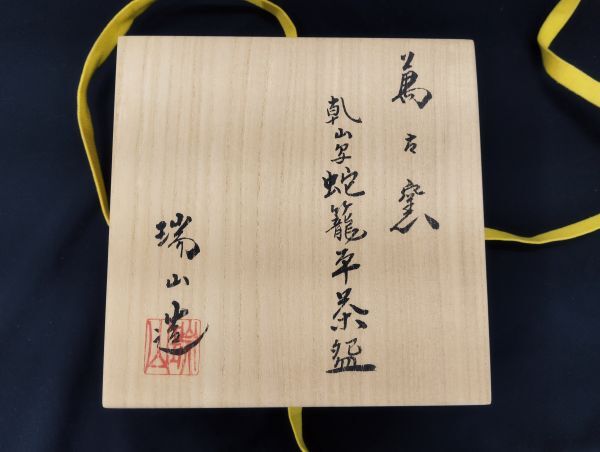 萬古窯
乾山写蛇籠草茶盌
瑞山造